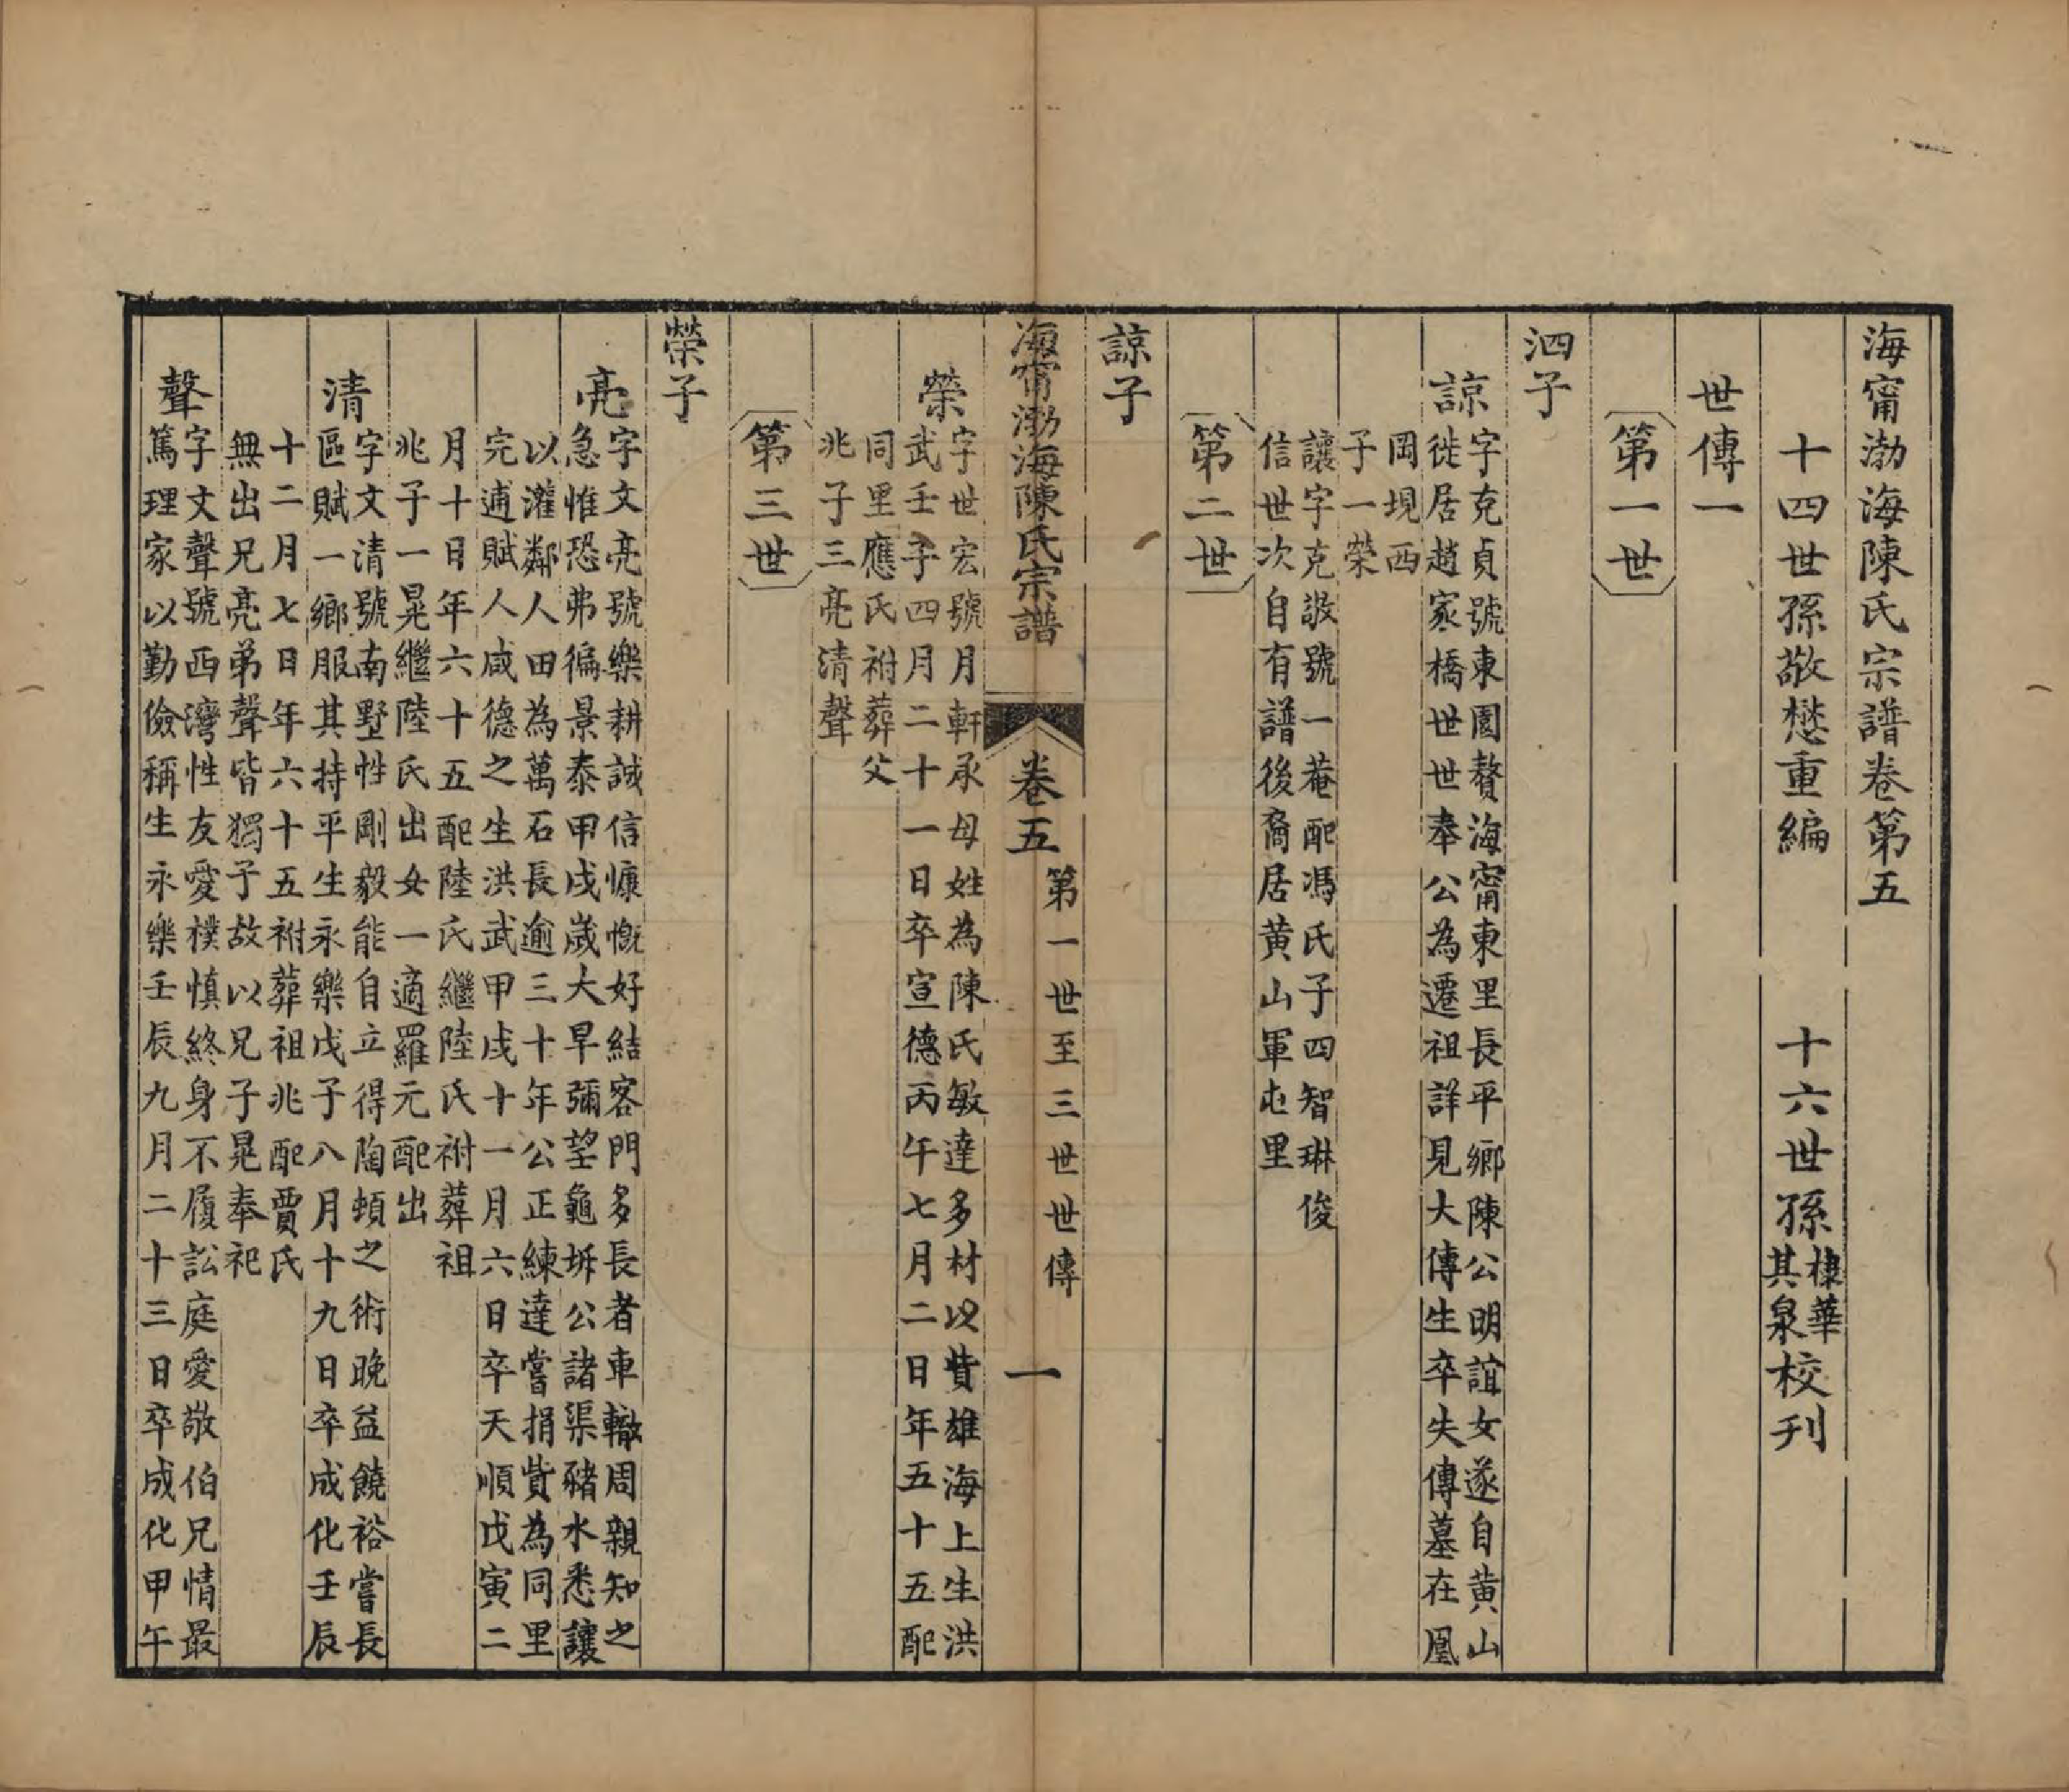 海甯渤海陳氏宗譜卷第五
十四世孫敬㦤重編　十六世孫棣華其泉校刊
世傳一
第一世
泗子
諒
字克貞號東園贅海甯東里長平鄉陳公明誼女遂自黃山
徙居趙家橋世世奉公為遷祖詳見大傳生卒失傳墓在凰
岡垷西
子一榮
讓字克敬號一菴配馮氏子四智琳俊
信世次自有譜後裔居黃山軍屯里
第二世
諒子
榮
字世宏號月軒承母姓為陳氏敏達多材以貲雄海上生洪
武壬子四月二十一日卒宣德丙午七月二日年五十五配
同里應氏祔葬父
兆子三亮清聲
海甯渤海陳氏宗譜
卷五
第一世至三世世傳
一
第三世
榮子
亮
字文亮號樂耕誠信慷慨好結客門多長者車轍周親知之
急惟恐弗徧景泰甲戌歲大旱彌望龜坼公諸渠豬水悉讓
以灌鄰人田為萬石長逾三十年公正練達嘗捐貲為同里
完逋賦人咸德之生洪武甲戌十一月六日卒天順戊寅二
月十日年六十五配陸氏繼陸氏祔葬祖
兆子一晃繼陸氏出女一適羅元配出
清
字文清號南墅性剛毅能自立得陶頓之術晚益饒裕嘗長
區賦一鄉服其持平生永樂戊子八月十九日卒成化壬辰
十二月七日年六十五祔葬祖兆配賈氏
無出兄亮弟聲皆獨子故以兄子晃奉祀
聲
字文聲號西灣性友愛樸慎終身不履訟庭愛敬伯兄情最
篤理家以勤儉稱生永樂壬辰九月二十三日卒成化甲午